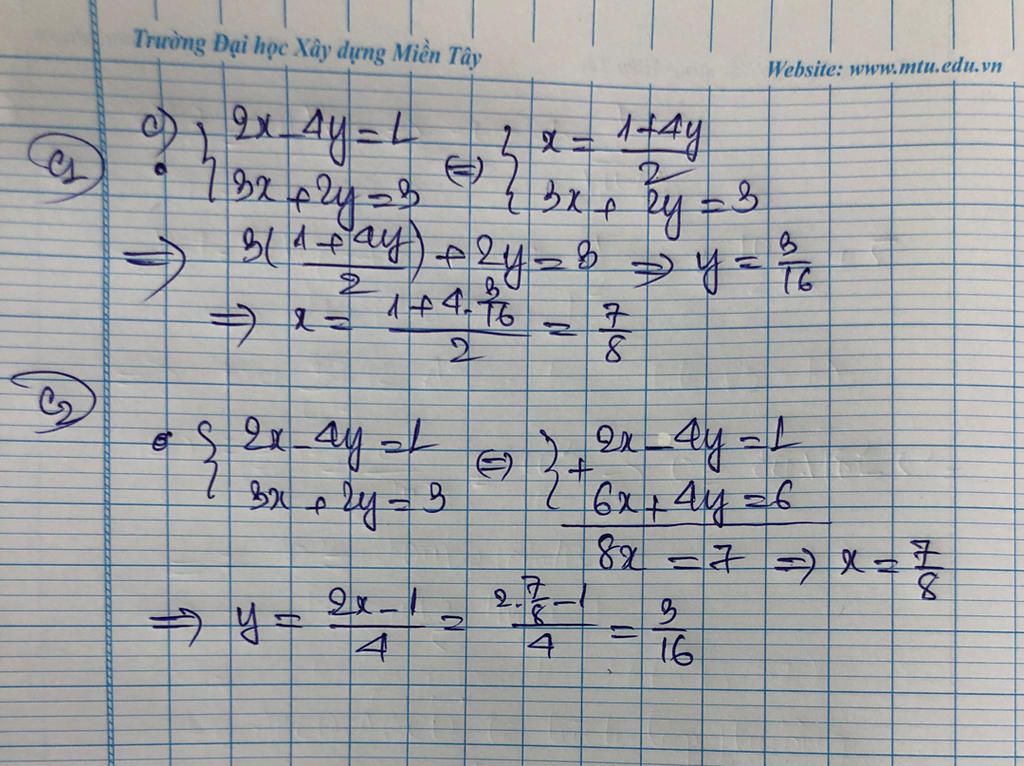 Trường Đại học Xây dựng Miền Tây
Website: www.mtu.edu.vn
C1 c) { 2x - 4y = 1 ⇔ { x = (1+4y)/2
{ 3x + 2y = 3 { 3x + 2y = 3
⇒ 3((1+4y)/2) + 2y = 3 ⇒ y = 3/16
⇒ x = (1+4.3/16)/2 = 7/8
C2
• { 2x - 4y = 1 ⇔ { + 2x - 4y = 1
{ 3x + 2y = 3 { 6x + 4y = 6
8x = 7 ⇒ x = 7/8
⇒ y = (2x-1)/4 = (2.7/8-1)/4 = 3/16